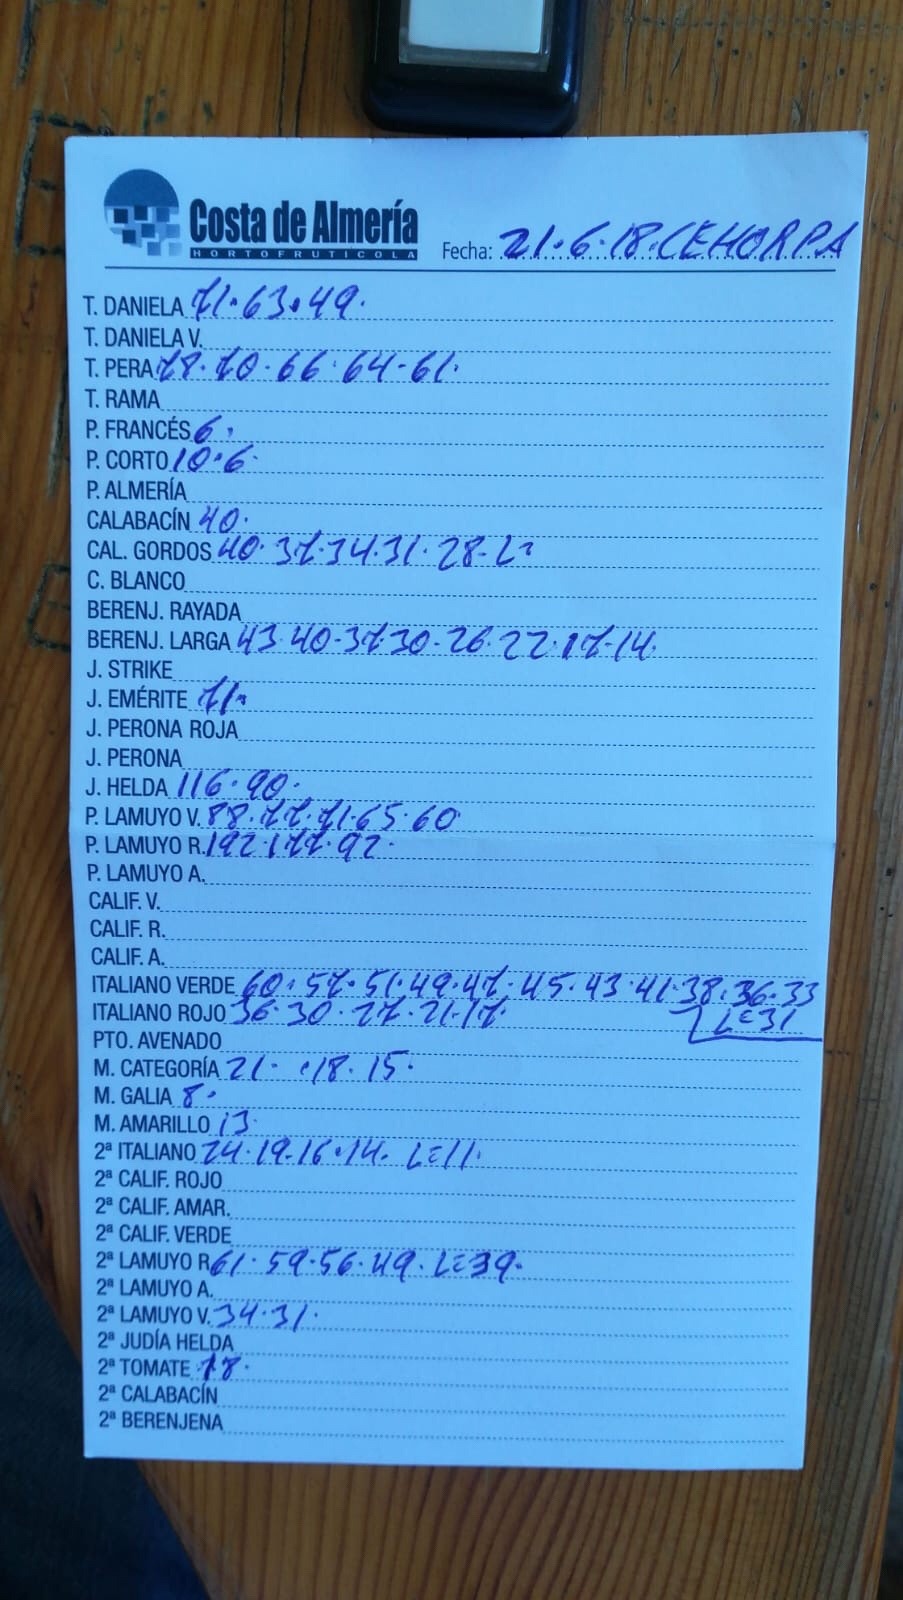 Costa de Almería
HORTOFRUTICOLA
Fecha: 21.6.18.CEHORPA
T. DANIELA 71.63.49.
T. DANIELA V.
T. PERA 78.70.66.64.61.
T. RAMA
P. FRANCÉS 6.
P. CORTO 10.6.
P. ALMERÍA
CALABACÍN 40.
CAL. GORDOS 40.37.34.31.28-L
C. BLANCO
BERENJ. RAYADA
BERENJ. LARGA 43.40.37.30.26.22.17.14.
J. STRIKE
J. EMÉRITE 71.
J. PERONA ROJA
J. PERONA
J. HELDA 116.90.
P. LAMUYO V. 88.77.71.65.60
P. LAMUYO R. 192.177.92.
P. LAMUYO A.
CALIF. V.
CALIF. R.
CALIF. A.
ITALIANO VERDE 60.57.51.49.47.45.43.41.38.36.33
L=31
ITALIANO ROJO 36.30.27.21.17.
PTO. AVENADO
M. CATEGORÍA 21. .18.15.
M. GALIA 8.
M. AMARILLO 13.
2ª ITALIANO 24.19.16.14. L=11.
2ª CALIF. ROJO
2ª CALIF. AMAR.
2ª CALIF. VERDE
2ª LAMUYO R 61.59.56.49.L=39.
2ª LAMUYO A.
2ª LAMUYO V. 34.31.
2ª JUDÍA HELDA
2ª TOMATE 18.
2ª CALABACÍN
2ª BERENJENA